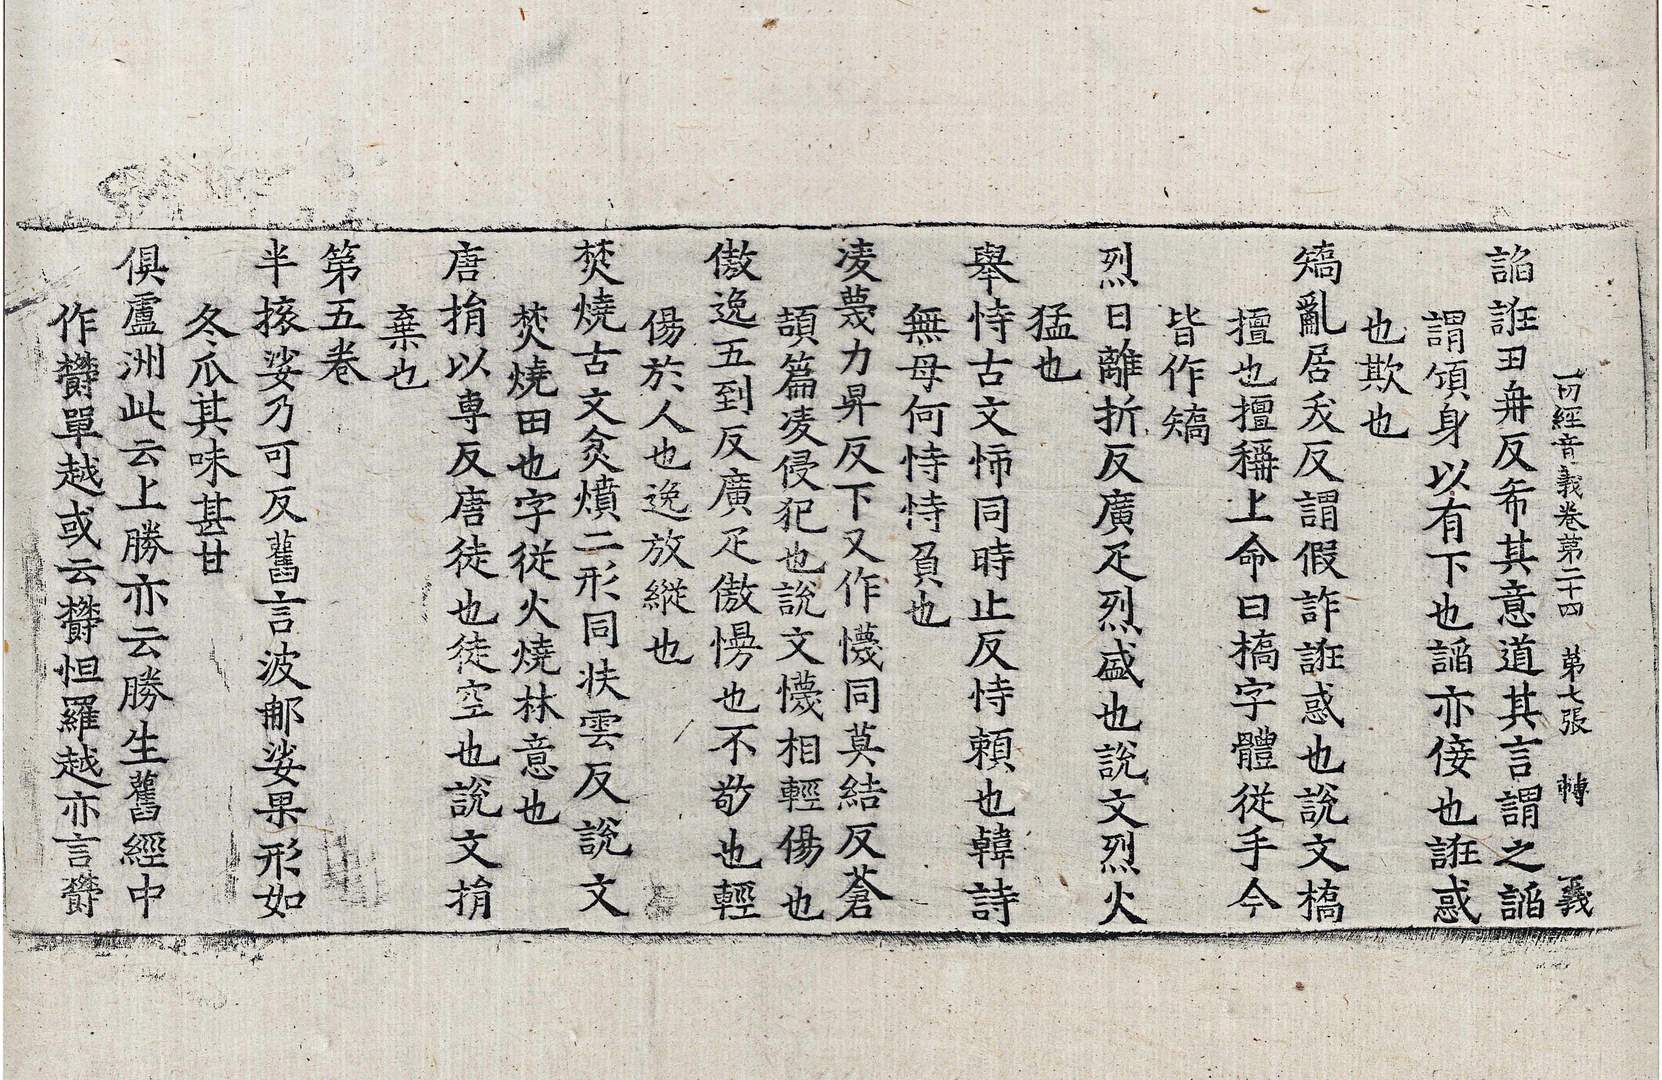 一切經音義卷第二十四 第七張 轉 義
諂誑丑冉反希其意道其言謂之謟
謂傾身以有下也謟亦佞也誑惑
也欺也
矯亂居夭反謂假詐誑惑也說文撟
擅也擅稱上命曰撟字體從手今
皆作矯
烈日離折反廣疋烈盛也說文烈火
猛也
舉恃古文㤄同時止反恃賴也韓詩
無母何恃恃負也
凌蔑力昇反下又作懱同莫結反蒼
頡篇凌侵犯也說文懱相輕傷也
傲逸五到反廣疋傲慢也不敬也輕
傷於人也逸放縱也
焚燒古文炃燌二形同扶雲反說文
焚燒田也字從火燒林意也
唐捐以專反唐徒也徒空也說文捐
棄也
第五卷
半㨖娑乃可反舊言波那娑果形如
冬瓜其味甚甘
俱盧洲此云上勝亦云勝生舊經中
作欝單越或云欝怛羅越亦言欝